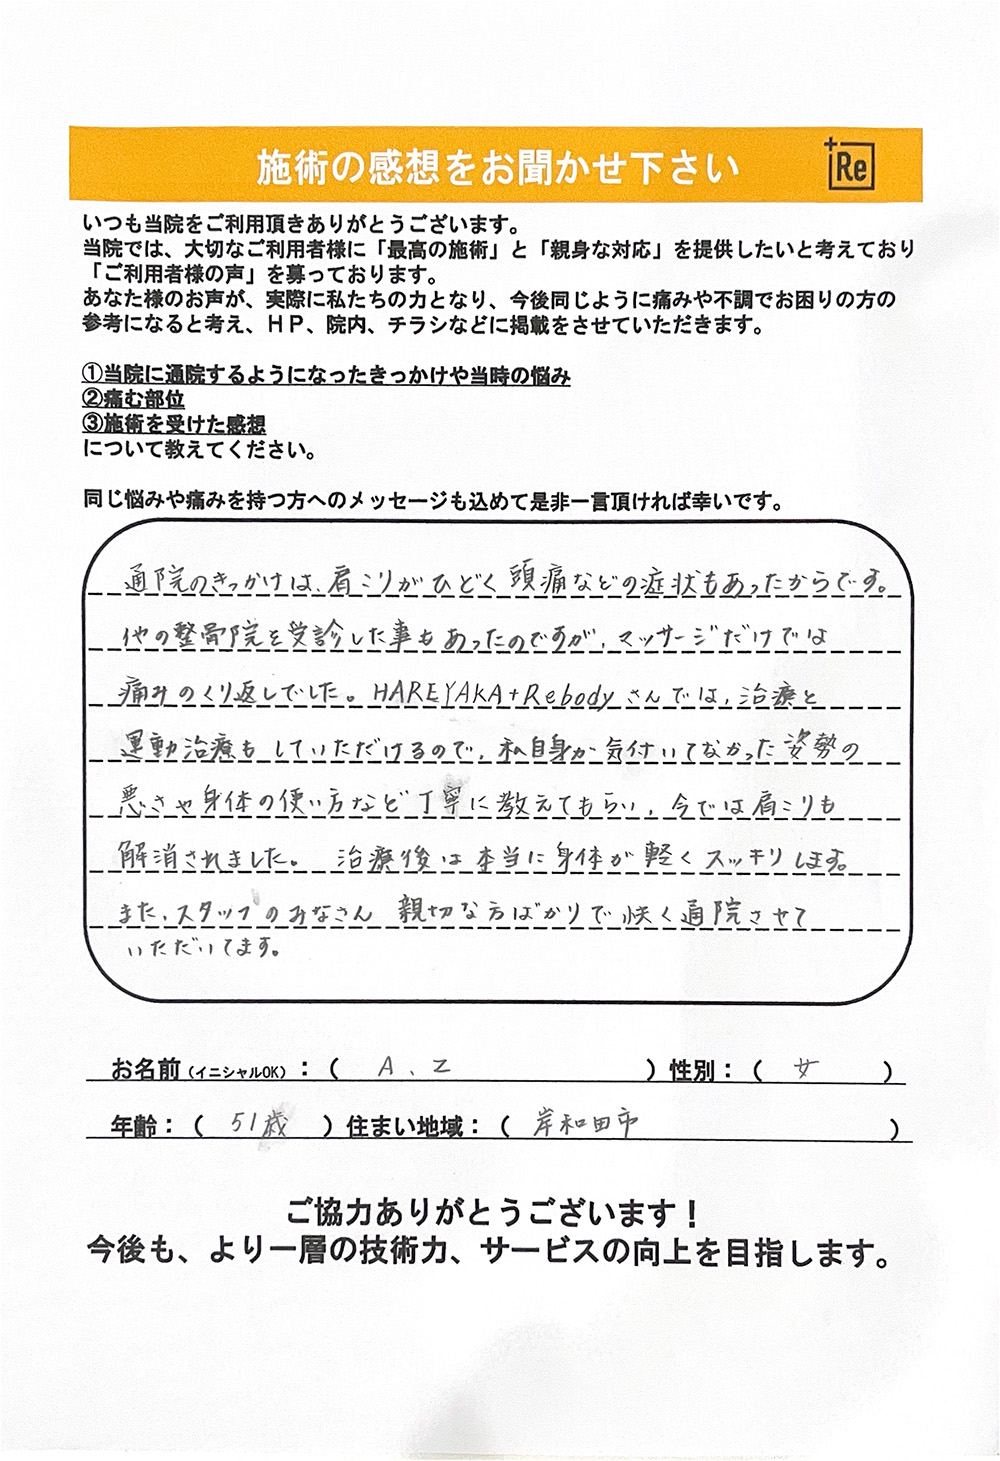 施術の感想をお聞かせ下さい
+Re
いつも当院をご利用頂きありがとうございます。
当院では、大切なご利用者様に「最高の施術」と「親身な対応」を提供したいと考えており
「ご利用者様の声」を募っております。
あなた様のお声が、実際に私たちの力となり、今後同じように痛みや不調でお困りの方の
参考になると考え、ＨＰ、院内、チラシなどに掲載をさせていただきます。
①当院に通院するようになったきっかけや当時の悩み
②痛む部位
③施術を受けた感想
について教えてください。
同じ悩みや痛みを持つ方へのメッセージも込めて是非一言頂ければ幸いです。
通院のきっかけは、肩こりがひどく頭痛などの症状もあったからです。
他の整骨院を受診した事もあったのですが、マッサージだけでは
痛みのくり返しでした。HAREYAKA+Rebodyさんでは、治療と
運動治療もしていただけるので、私自身が気付いてなかった姿勢の
悪さや身体の使い方など丁寧に教えてもらい、今では肩こりも
解消されました。 治療後は本当に身体が軽くスッキリします。
また、スタッフのみなさん 親切な方ばかりで快く通院させて
いただいてます。
お名前（イニシャルOK）：（ A、Z ）性別：（ 女 ）
年齢：（ 51歳 ）住まい地域：（ 岸和田市 ）
ご協力ありがとうございます！
今後も、より一層の技術力、サービスの向上を目指します。